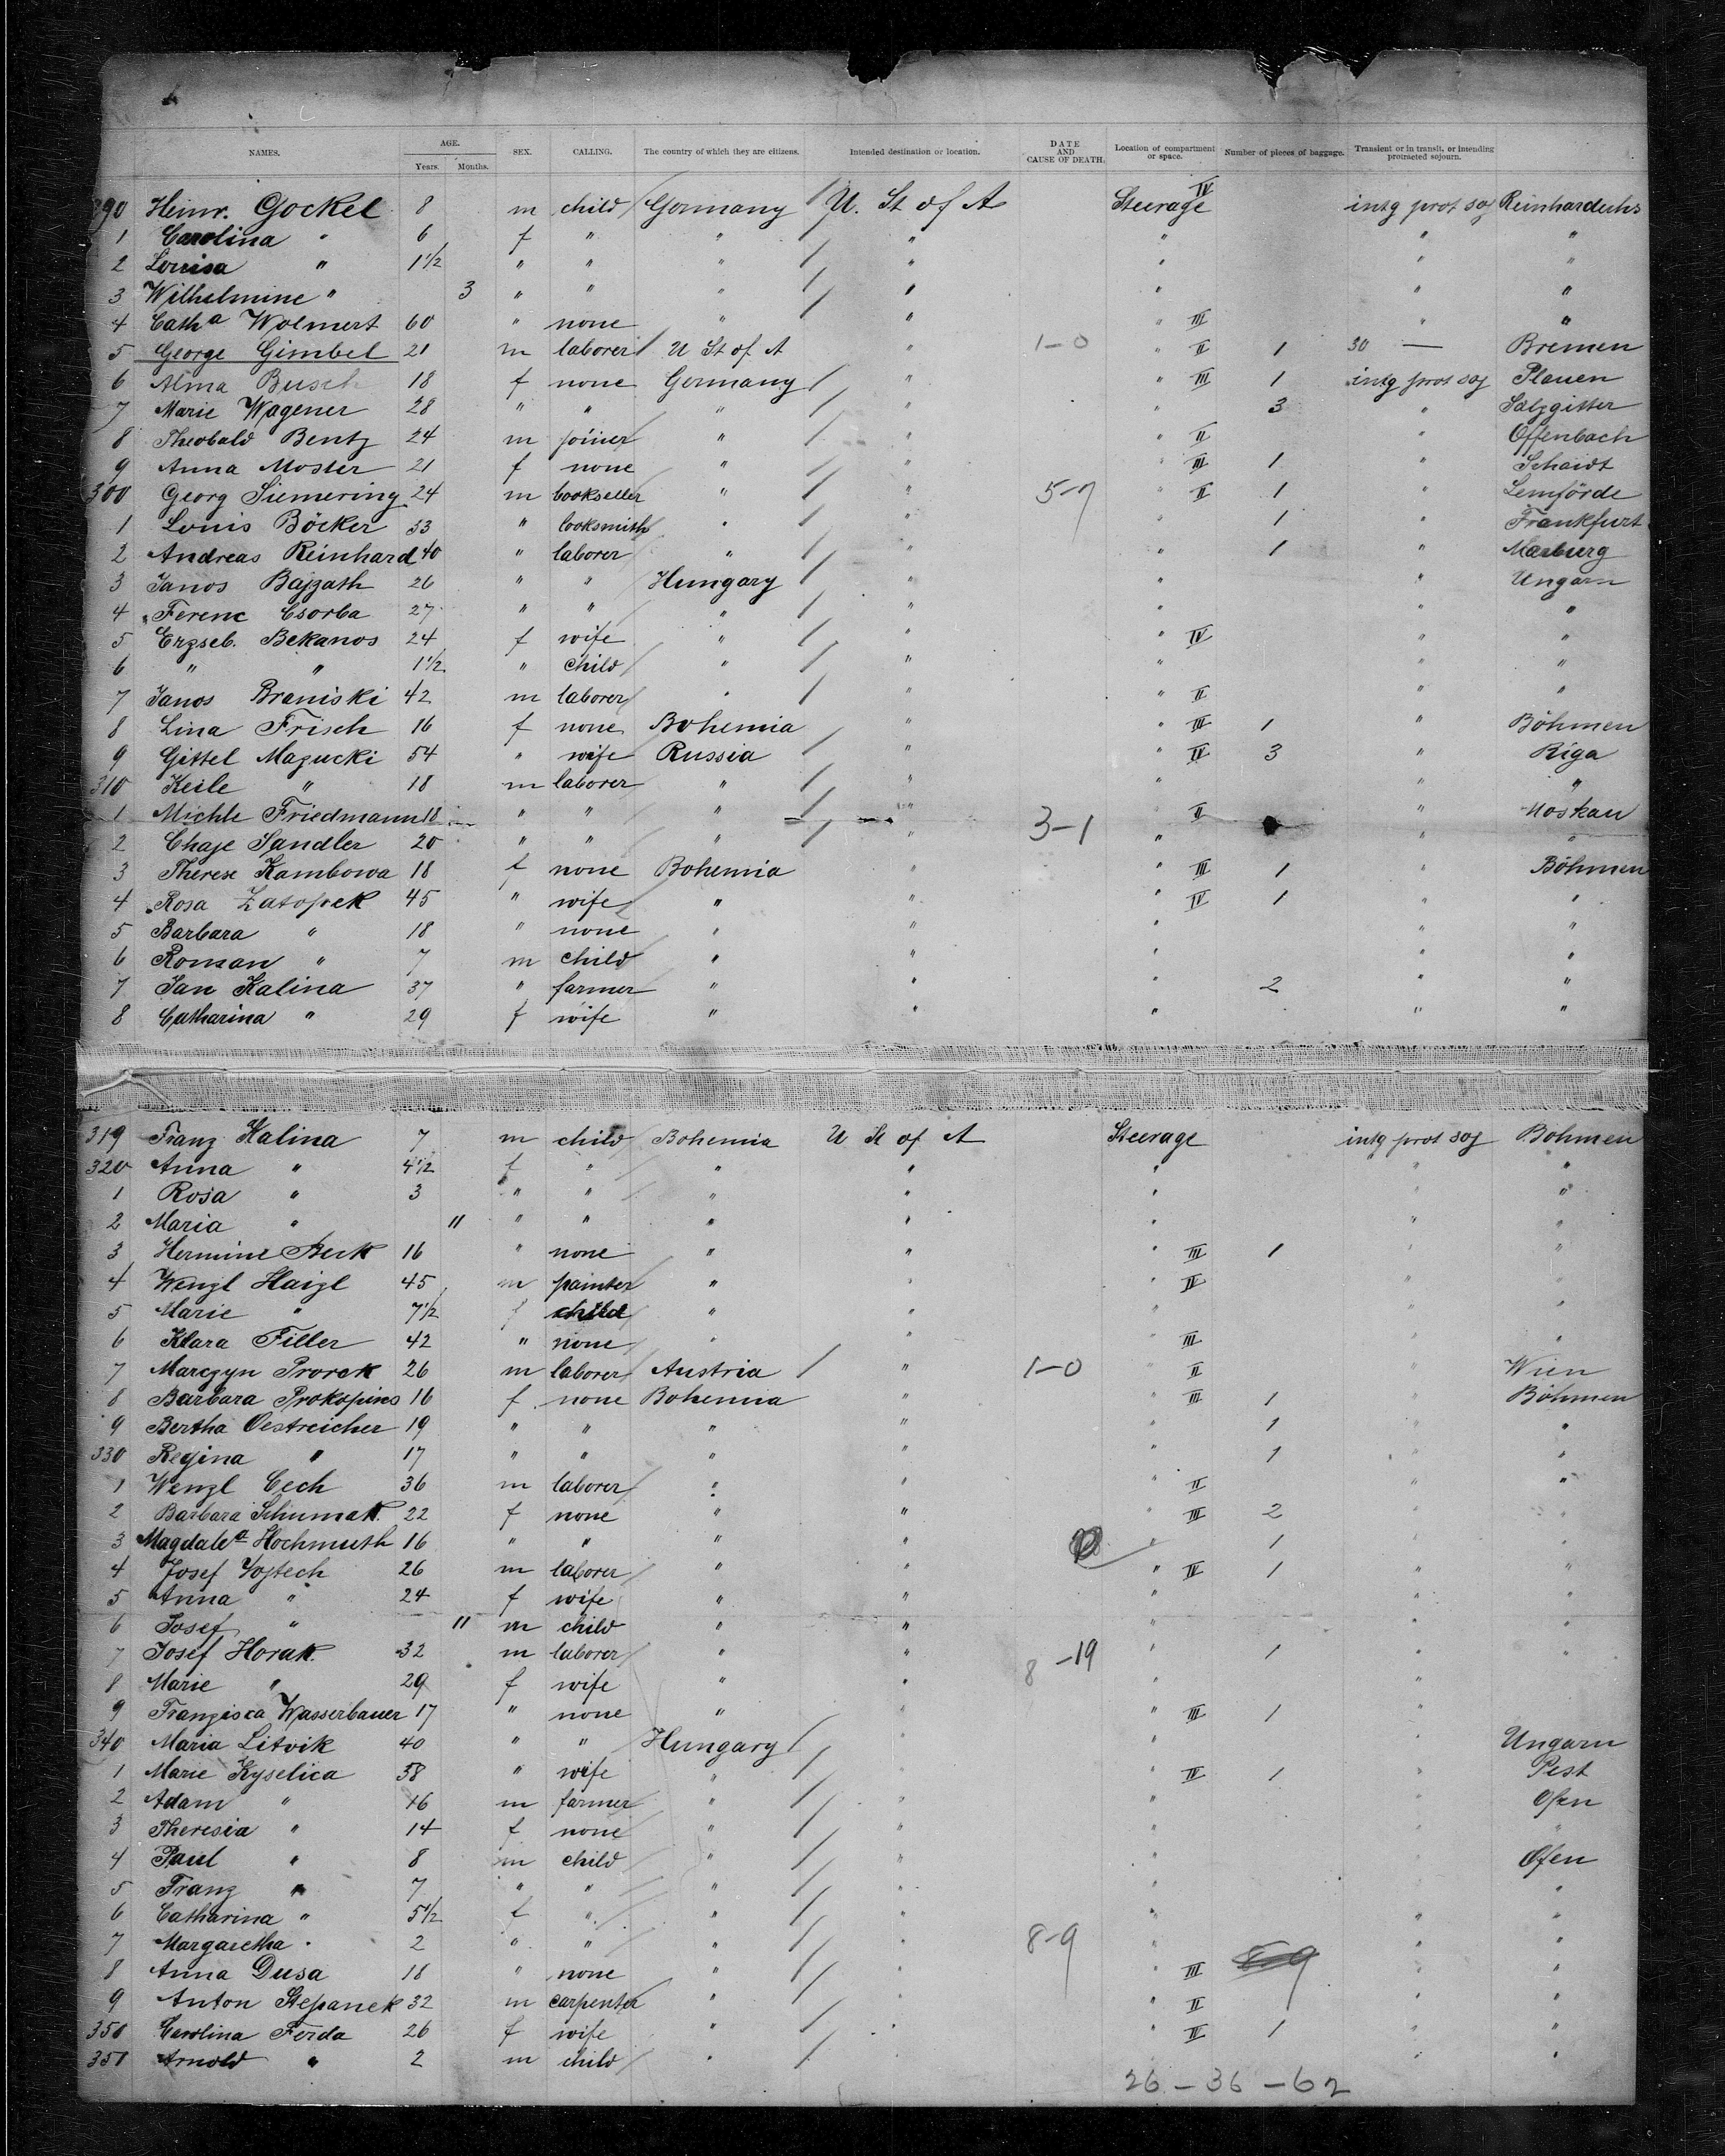 NAMES. AGE. Years. Months. SEX. CALLING. The country of which they are citizens. Intended destination or location. DATE AND CAUSE OF DEATH. Location of compartment or space. Number of pieces of baggage. Transient or in transit, or intending protracted sojourn.
290 Heinr. Gockel 8 m child Germany U. St of A Steerage IV intg prot soj
1 Carolina " 6 f " " " " " "
2 Louisa " 1 1/2 " " " " " " "
3 Wilhelmine " 3 " " " " " " "
4 Cath a Wolmert 60 " none " " " III " "
5 George Gimbel 21 m laborer U St of A " 1-0 " II 1 30 — Bremen
6 Alma Busch 18 f none Germany " " III 1 intg prot soj Plauen
7 Marie Wagener 28 " " " " " 3 " Salzgitter
8 Theobald Bentz 24 m joiner " " " II " Offenbach
9 Anna Moster 21 f none " " " III 1 " Schaidt
300 Georg Siemering 24 m bookseller " " 5-7 " II 1 " Lemförde
1 Louis Böcker 33 " locksmith " " " 1 " Frankfurt
2 Andreas Reinhard 40 " laborer " " " 1 " Marburg
3 Janos Bajzath 26 " " Hungary " " " Ungarn
4 Ferenc Csorba 27 " " " " " " "
5 Erzseb. Bekanos 24 f wife " " " IV " "
6 " " 1 1/2 " child " " " " "
7 Janos Braniski 42 m laborer " " " II " "
8 Lina Frisch 16 f none Bohemia " " III 1 " Böhmen
9 Gittel Mazucki 54 " wife Russia " " IV 3 " Riga
310 Keile " 18 m laborer " " " " "
1 Michle Friedmann 18 " " " " " II " Moskau
2 Chaje Sandler 20 " " " " 3-1 " " "
3 Therese Kambowa 18 f none Bohemia " " III 1 " Böhmen
4 Rosa Zatopek 45 " wife " " " IV 1 " "
5 Barbara " 18 " none " " " " "
6 Roman " 7 m child " " " "
7 Jan Kalina 37 " farmer " " " 2 " "
8 Catharina " 29 f wife " " " " "
319 Franz Kalina 7 m child Bohemia U St of A Steerage intg prot soj Bohmen
320 Anna " 4 1/2 f " " " " " "
1 Rosa " 3 " " " " " " "
2 Maria " 11 " " " " " " "
3 Hermine Beck 16 " none " " " III 1 " "
4 Wenzl Haizl 45 m painter " " " II " "
5 Marie " 7 1/2 f child " " " " "
6 Klara Filler 42 " none " " " III " "
7 Marczyn Prorok 26 m laborer Austria " 1-0 " II " Wien
8 Barbara Prokopins 16 f none Bohemia " " III 1 " Böhmen
9 Bertha Oestreicher 19 " " " " " 1 " "
330 Regina " 17 " " " " " 1 " "
1 Wenzl Cech 36 m laborer " " " II " "
2 Barbara Schumak. 22 f none " " " III 2 " "
3 Magdale a Hochmuth 16 " " " " " 1 " "
4 Josef Vojtech 26 m laborer " " " IV 1 " "
5 Anna " 24 f wife " " " " "
6 Josef " 11 m child " " " " "
7 Josef Horak 32 m laborer " " 8 -19 " 1 " "
8 Marie " 29 f wife " " " "
9 Franzisca Wasserbauer 17 " none " " " III 1 "
340 Maria Litvik 40 " " Hungary " " " Ungarn
1 Marie Kyselica 38 " wife " " " IV 1 " Pest
2 Adam " 16 m farmer " " " " Ofen
3 Theresia " 14 f none " " " " "
4 Paul " 8 m child " " " " Ofen
5 Franz " 7 " " " " " "
6 Catharina " 5 1/2 f " " " " " "
7 Margaretha " 2 " " " " 8-9 " " "
8 Anna Dusa 18 " none " " " III 8-9 " "
9 Anton Stepanek 32 m carpenter " " " II " "
350 Carolina Ferda 26 f wife " " " IV 1 " "
351 Arnold " 2 m child " " "
26 - 36 - 62